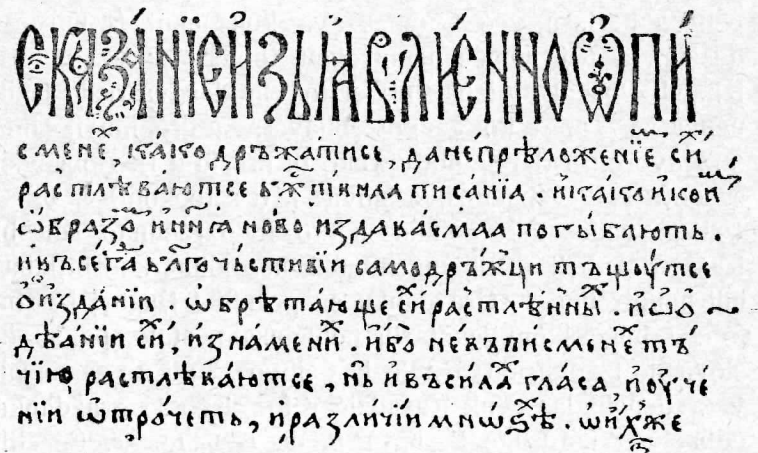 Сказа́нїе и҆з̾ꙗвлє́нно ѡ҆ пи́
сменеⷯ, како дръжатисе, да не прѣложенїеⷨ си́ⷯ
растлѣва́ютсе бжⷭ҇твнаа писа́нїа . и҆ како и҆ кои́ⷨ
ѡ҆́бразоⷨ и҆ нн҃ꙗ но́во и҆здава́емаа погыблють .
и҆ въсегⷣа бл҃гоч́ьстивїи самодръ́жци тъщоу́тсе
ѻ҆ и҆зда́нїи . ѡ҆брѣта́юще си́ⷯ растлѣ́нныⷯ . и҆ ѡ҆ ѻ҆
дѣа́нїи си́ⷯ, и҆ зна́мениⷯ . и҆́бо не въ писменеⷯ тъ́
чїю̀ растлѣва́ютсе , нь̀ и҆ въ си́лаⷯ гла́са и҆ оу҆че́
нїи ѿтро́четь , и҆ разли́чїи мнѡ́ѕѣⷯ . ѡ҆ и҆́хже